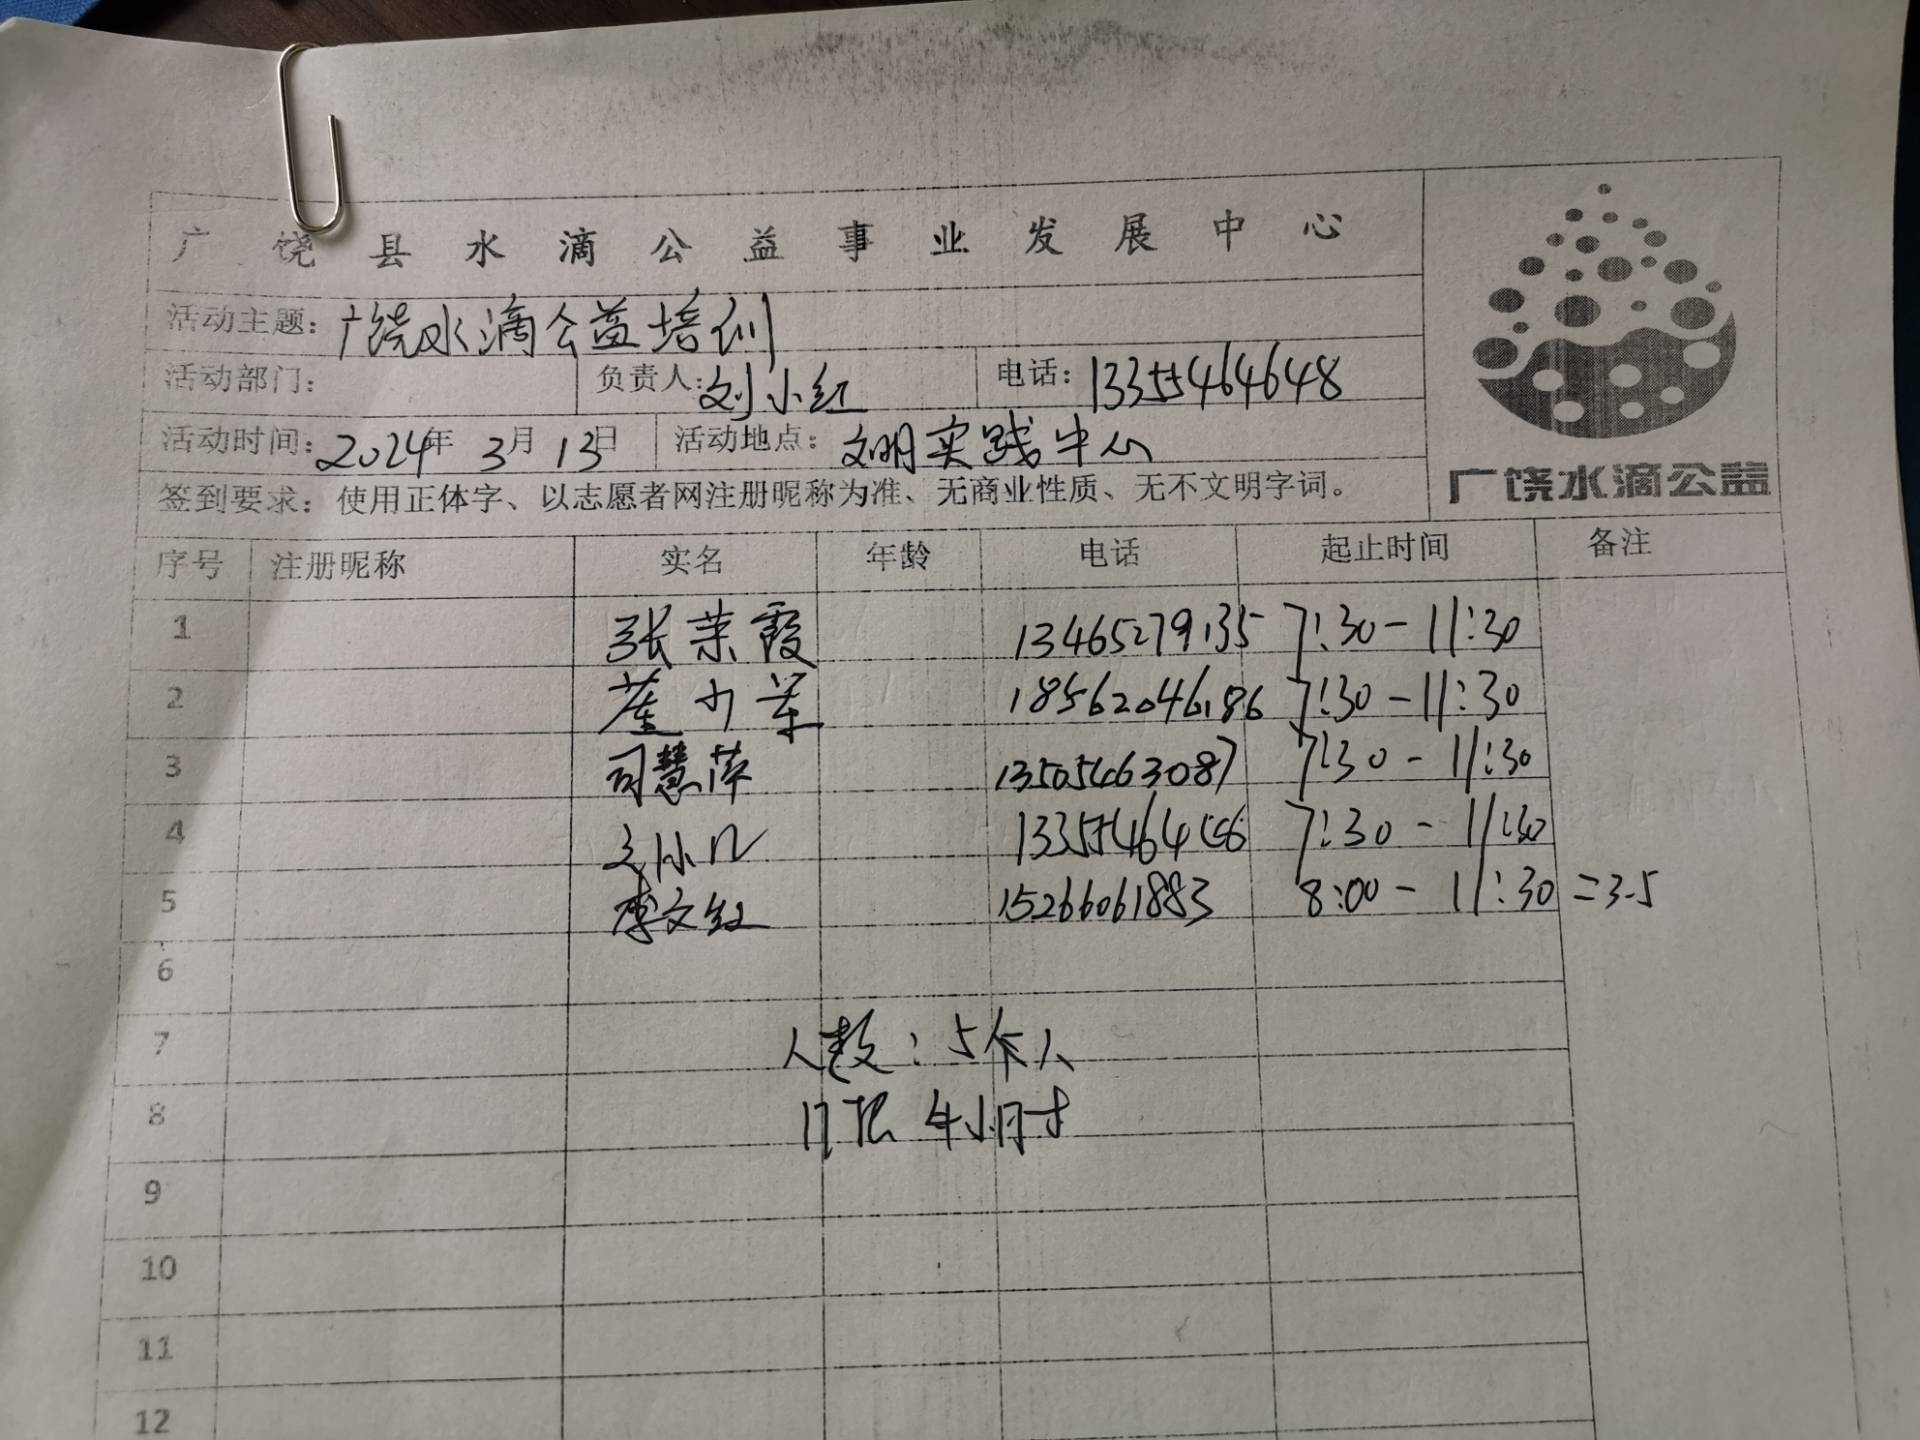 广饶县水滴公益事业发展中心
活动主题：广饶水滴公益培训
活动部门： 负责人：刘小红 电话：13355464648
活动时间：2024年 3月 13日 活动地点：文明实践中心
广饶水滴公益
签到要求：使用正体字、以志愿者网注册昵称为准、无商业性质、无不文明字词。
序号 注册昵称 实名 年龄 电话 起止时间 备注
1 张荣霞 13465279135 7:30-11:30
2 崔少军 18562046186 7:30-11:30
3 司慧萍 13505463087 7:30-11:30
4 7:30-11:30
5 李文红 15266061883 8:00-11:30 =3.5
6
7 人数：5个人
8 小时
9
10
11
12